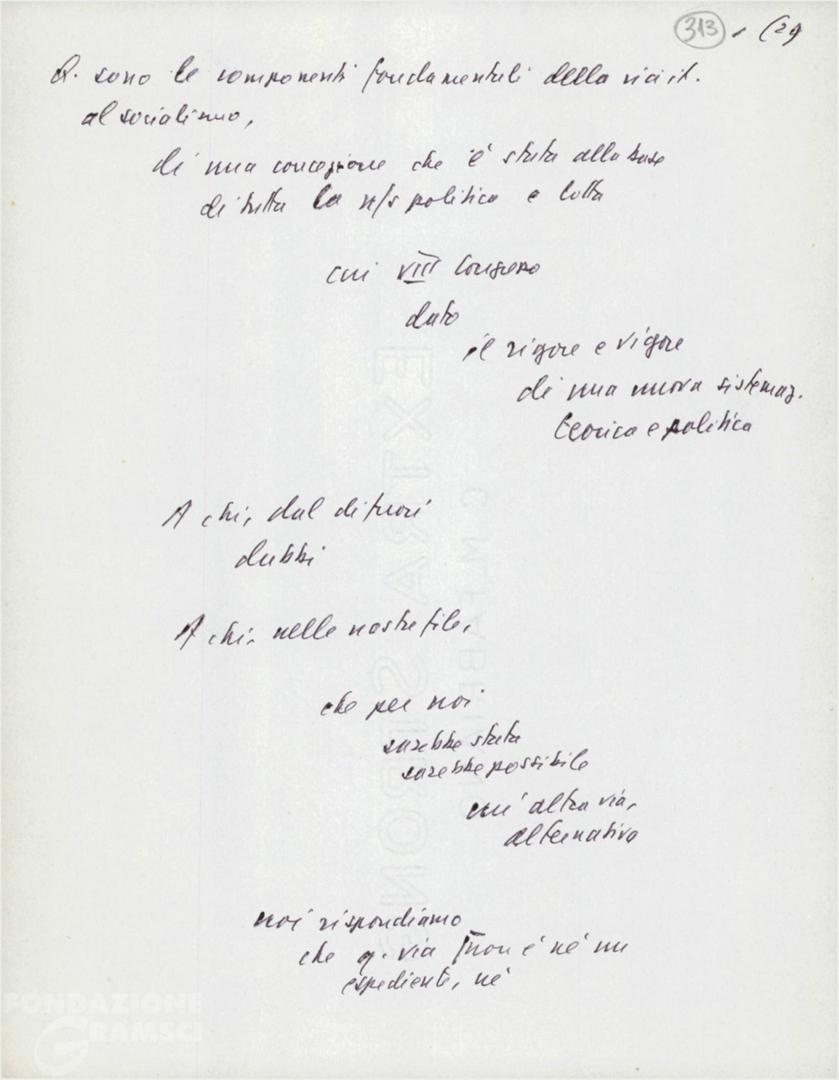 313 (29
Q. sono le componenti fondamentali della via it.
al socialismo,
di una concezione che è stata alla base
di tutta la n/s politica e lotta
cui VIII Congresso
dato
il rigore e vigore
di una nuova sistemaz.
teorica e politica
A chi, dal di fuori
dubbi
A chi, nelle nostre file,
che per noi
sarebbe stata
sarebbe possibile
un'altra via,
alternativa
noi rispondiamo
che q. via non è né un
espediente, né
FONDAZIONE
GRAMSCI
EXTRA STRONG